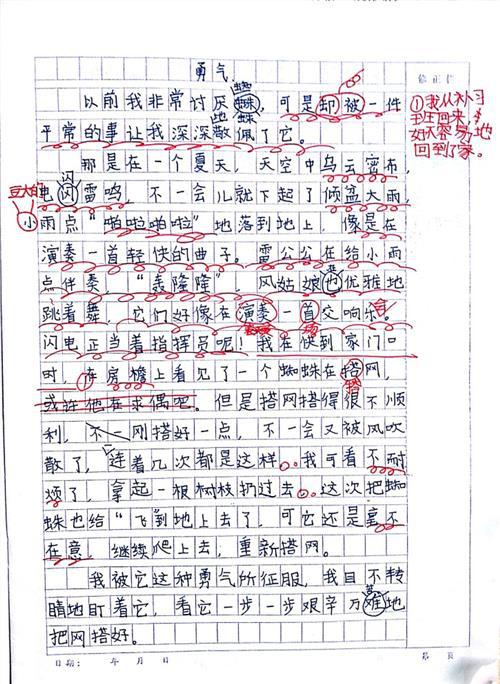 勇气
以前我非常讨厌蜘蛛，可是却被一件
平常的事让我深深敬佩了它。
那是在一个夏天，天空中乌云密布，
电闪雷鸣，不一会儿就下起了倾盆大雨，
小雨点“啪啦啪啦”地落到地上，像是在
演奏一首轻快的曲子。雷公公在给小雨
点伴奏，“轰隆隆”，风姑娘优雅地
跳着舞，它们好像在演奏一首交响乐
闪电正当着指挥员呢！我在快到家门口
时，在房檐上看见了一个蜘蛛在搭网，
或许他在求偶吧。但是搭网搭得很不顺
利，不一刚搭好一点，不一会又被风吹
散了，连着几次都是这样。我可看不耐
烦了，拿起一根树枝扔过去。这次把蜘
蛛也给“飞”到地上去了，可它还是毫不
在意，继续爬上去，重新搭网。
我被它这种勇气所征服，我目不转
睛地盯着它，看它一步一步艰辛万难地
把网搭好。
修正栏
①我从补习
班回来，
好不容易地
回到了家。
豆大的
日期： 年 月 日
第 页